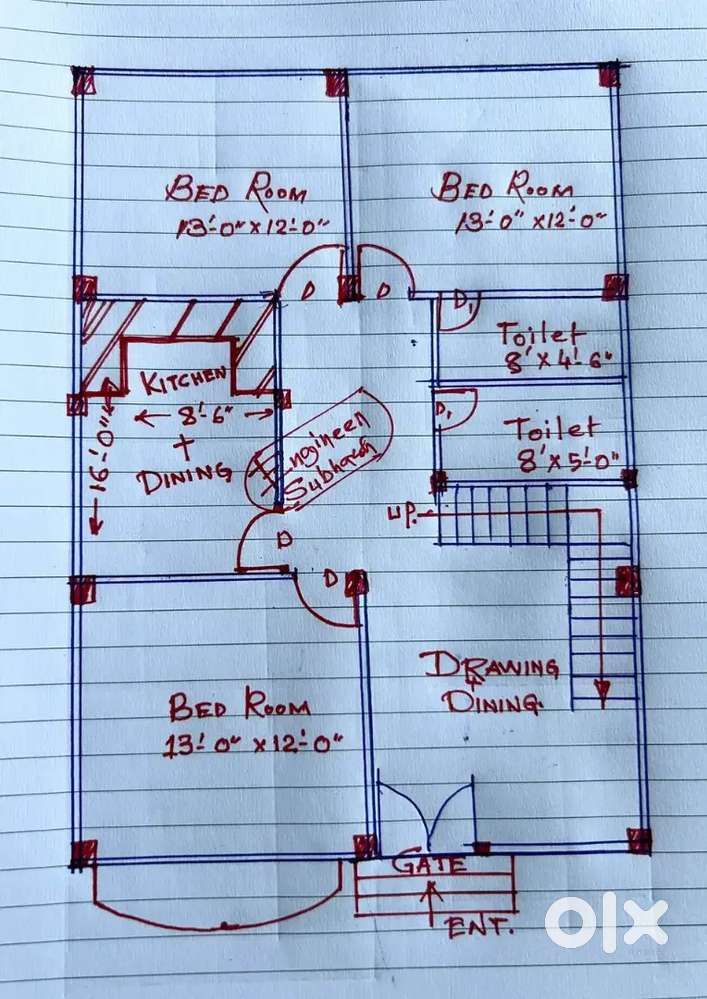 BED ROOM
13'-0" x 12'-0"
BED ROOM
13'-0" x 12'-0"
D
D
D1
Toilet
8' x 4'-6"
KITCHEN
8'-6"
+
DINING
16'-0"
D1
Toilet
8' x 5'-0"
Engineer
UP.
D
D
DRAWING
+
DINING.
BED ROOM
13'-0" x 12'-0"
GATE
ENT.
olx